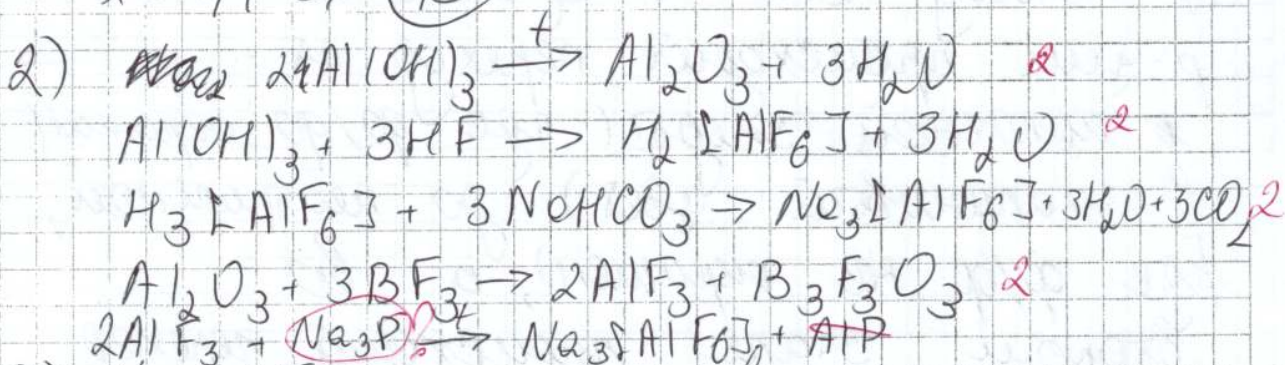 2) 2Al(OH)₃ →ᵗ Al₂O₃ + 3H₂O 2
Al(OH)₃ + 3HF → H₂[AlF₆] + 3H₂O 2
H₃[AlF₆] + 3NaHCO₃ → Na₃[AlF₆] + 3H₂O + 3CO₂ 2
Al₂O₃ + 3BF₃ → 2AlF₃ + B₃F₃O₃ 2
2AlF₃ + Na₃P ? →ᵗ Na₃[AlF₆] + AlP